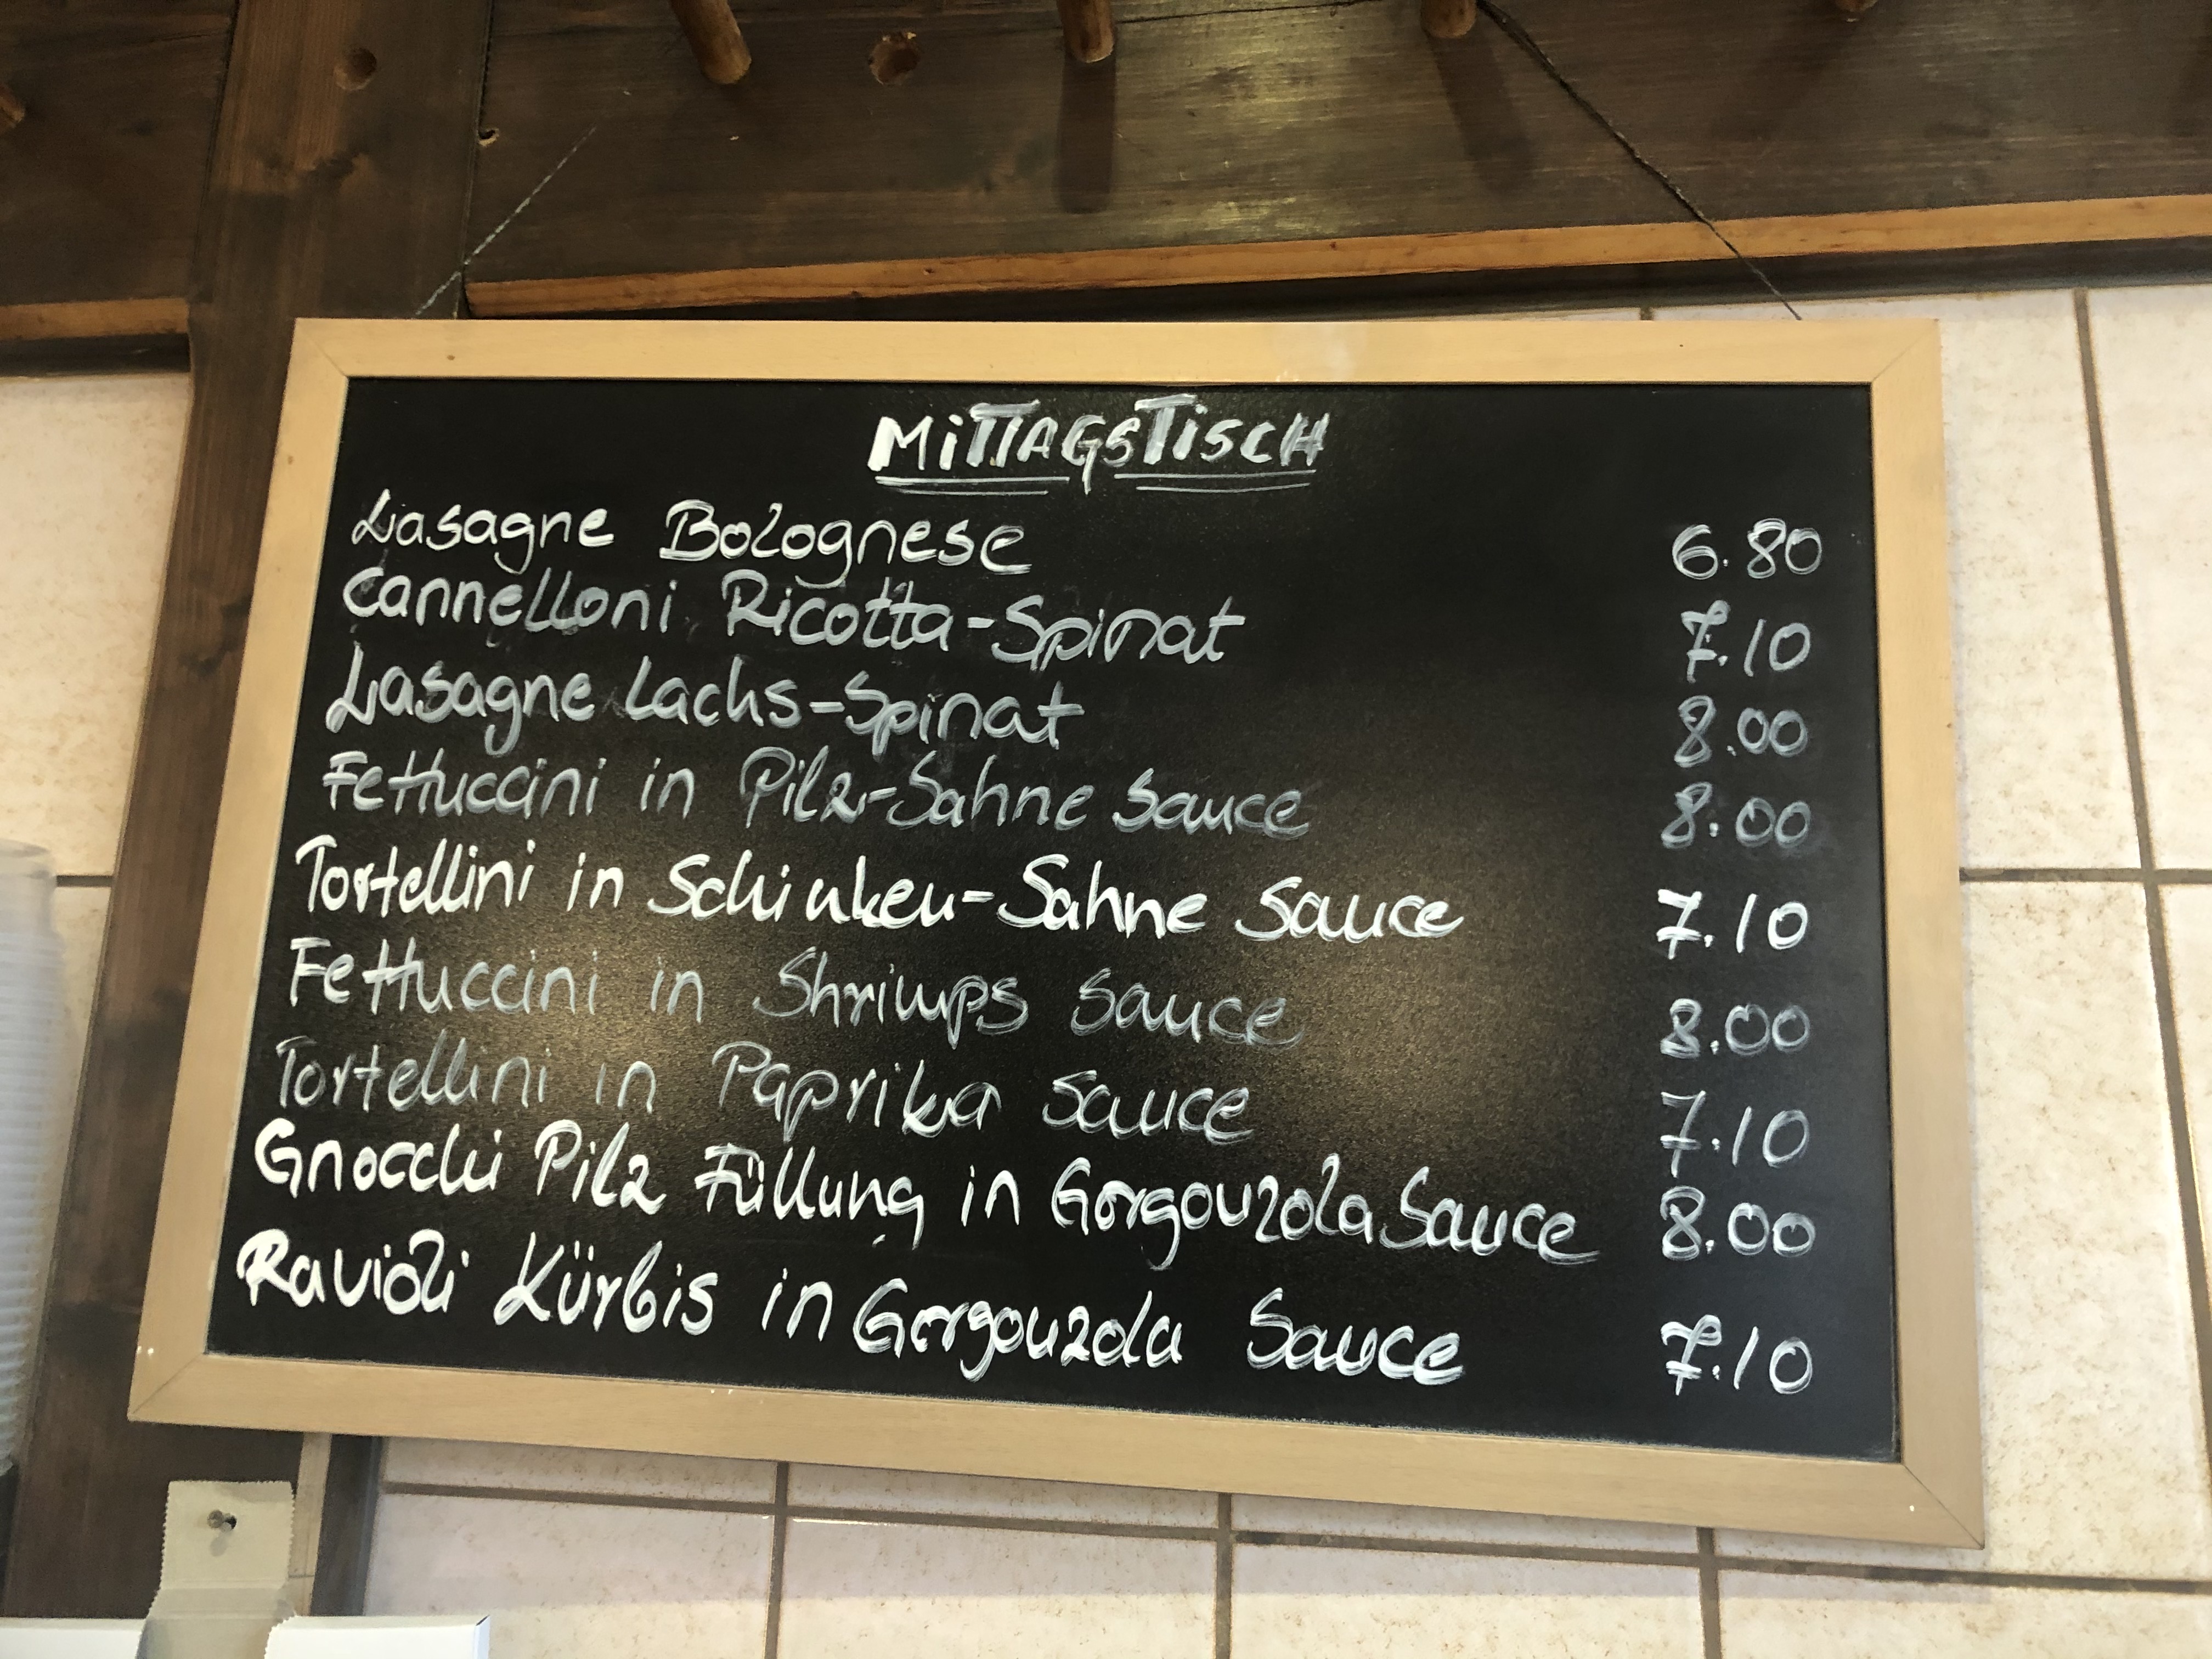 MiTTAGSTiSCH
Lasagne Bolognese 6.80
Cannelloni Ricotta-Spinat 7.10
Lasagne Lachs-Spinat 8.00
Fettuccini in Pilz-Sahne Sauce 8.00
Tortellini in Schinken-Sahne Sauce 7.10
Fettuccini in Shrimps Sauce 8.00
Tortellini in Paprika Sauce 7.10
Gnocchi Pilz Füllung in Gorgonzola Sauce 8.00
Ravioli Kürbis in Gorgonzola Sauce 7.10